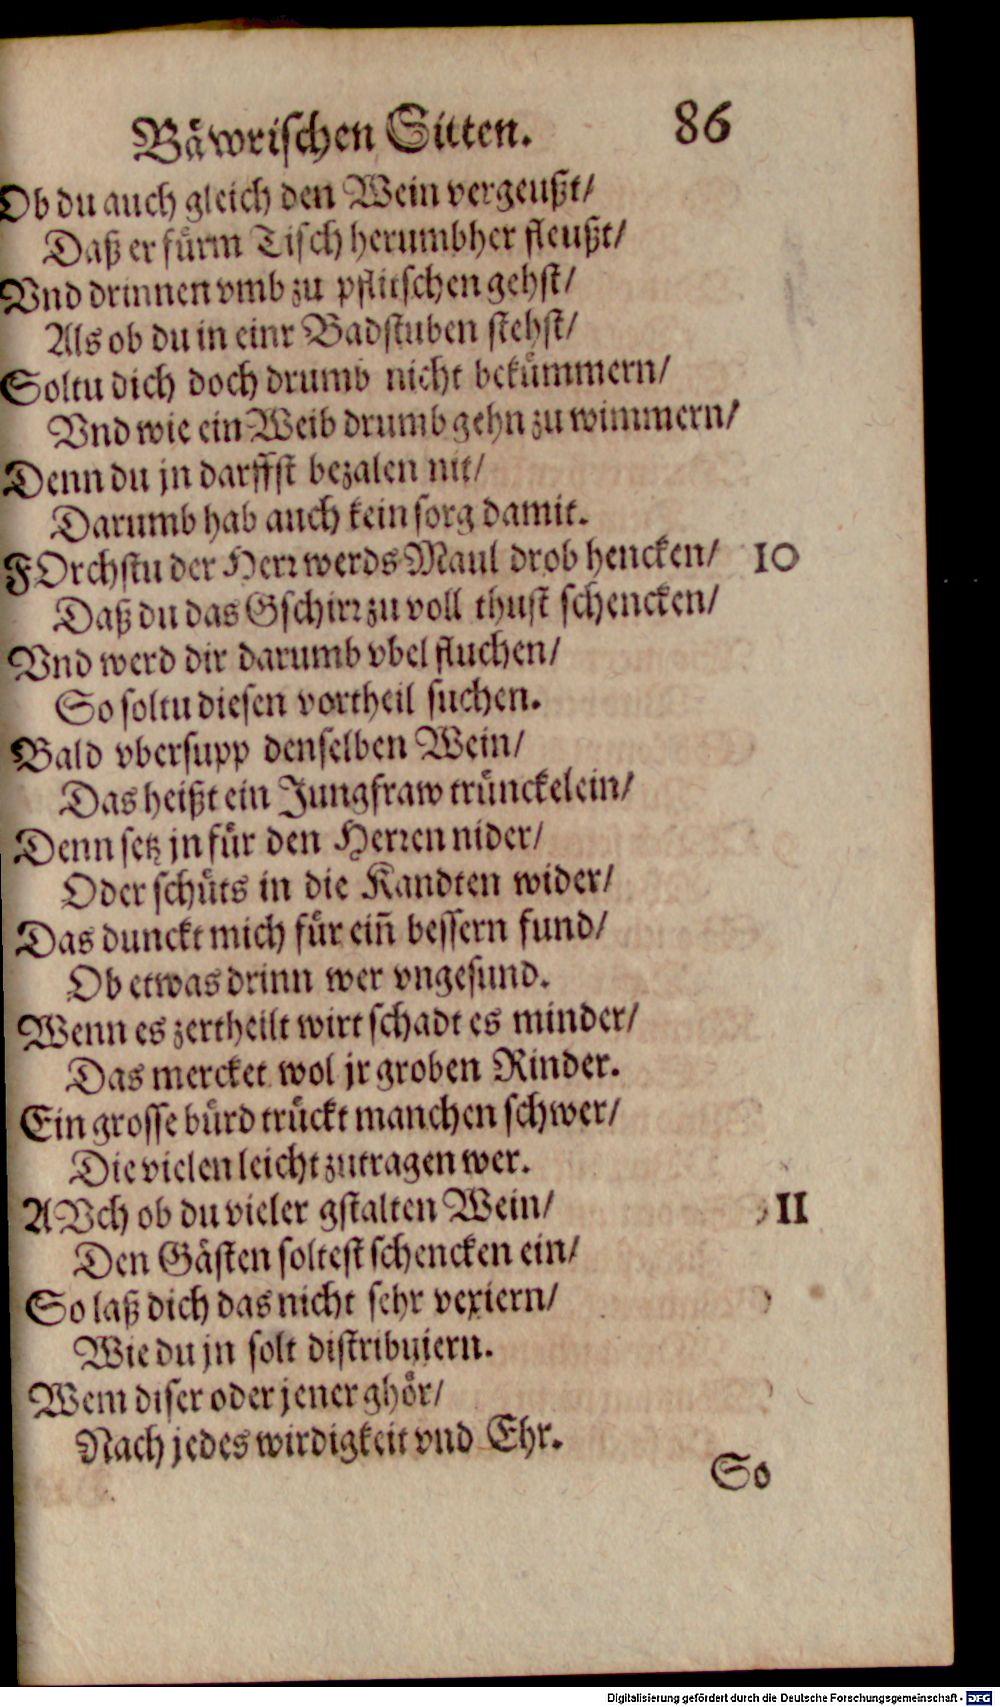 Bäwrischen Sitten. 86
Ob du auch gleich den Wein vergeußt/
Daß er fürm Tisch herumbher fleußt/
Vnd drinnen vmb zu pflitschen gehst/
Als ob du in einr Badstuben stehst/
Soltu dich doch drumb nicht bekümmern/
Vnd wie ein Weib drumb gehn zu wimmern/
Denn du jn darffst bezalen nit/
Darumb hab auch kein sorg damit.
FOrchstu der Herr werds Maul drob hencken/ 10
Daß du das Gschirr zu voll thust schencken/
Vnd werd dir darumb vbel fluchen/
So soltu diesen vortheil suchen.
Bald vbersupp denselben Wein/
Das heißt ein Jungfraw trünckelein/
Denn setz jn für den Herren nider/
Oder schüts in die Kandten wider/
Das dunckt mich für ein̄ bessern fund/
Ob etwas drinn wer vngesund.
Wenn es zertheilt wirt schadt es minder/
Das mercket wol jr groben Rinder.
Ein grosse bürd trückt manchen schwer/
Die vielen leicht zutragen wer.
AVch ob du vieler gstalten Wein/ 11
Den Gästen soltest schencken ein/
So laß dich das nicht sehr vexiern/
Wie du jn solt distribuiern.
Wem diser oder jener ghör/
Nach jedes wirdigkeit vnd Ehr.
So
Digitalisierung gefördert durch die Deutsche Forschungsgemeinschaft - DFG